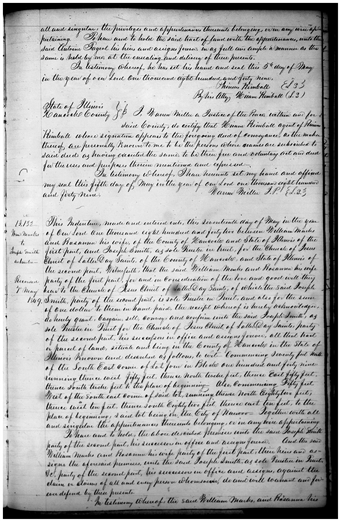 all and singular the privileges and appurtenances thereunto belonging, or in any wise apper-
taining. To have and to hold the said tract of land with the appurtenances, unto the
said heirs and assigns forever in as full and ample a manner as the
same is held by me at the ensealing and delivery of these presents.
In testimony whereof, he has set his hand and seal this 5th day of May
in the year of our Lord one thousand eight hundred and forty nine.
Kimball
By his Atty. Hiram Kimball
State of Illinois
Hancock County I, a Justice of the Peace within and for
said County, do certify that Hiram Kimball agent of
Kimball whose signature appears to the foregoing deed of conveyance, as the maker
thereof, are personally known to me to be the persons whose names are subscribed to
said deed as having executed the same to be their free and voluntary act and deed
for the uses and purposes therein mentioned and expressed.
In testimony whereof, I have hereunto set my hand and affixed
my seal this fifth day of May in the year of our Lord one thousand eight hundred
and forty nine.
This Indenture, made and entered into the seventeenth day of May in the year
of our Lord one thousand eight hundred and forty two between William Marks
and Rosannah his wife, of the County of Hancock and State of Illinois of the
first part, and Joseph Smith, as sole Trustee in Trust, for the Church of Jesus
Christ of Latter Day Saints, of the County of Hancock, and State of Illinois of
the second part. Witnesseth; that the said William Marks and Rosannah his wife
party of the first part, for and in consideration of the love and good will they
bear to the Church of Jesus Christ of Latter Day Saints, of which the said Joseph
Smith, party of the second part, is sole Trustee in Trust, and also for the sum
of one dollar to them in hand paid, the receipt whereof is hereby acknowledged,
do hereby grant, bargain sell convey and confirm unto the said Joseph Smith, as
sole Trustee in Trust for the Church of Jesus Christ of Latter Day Saints, party
of the second part, his successors in office and assigns forever, all that tract
or parcel of land, situate and being in the County of Hancock in the State of
Illinois known and described as follows to wit: Commencing
of the South East corner of Lot four in Block one hundred and forty nine
running thence west fifty feet, thence North feet, thence East fifty feet
thence South feet to the place of beginning. Also Commencing fifty feet
West of the south east corner of said lot, running thence North
thence west ten feet, thence South feet, thence east ten feet, to the
place of beginning; said lot being in the City of Nauvoo. Together with all
and singular the appurtenances thereunto belonging, or in any wise appertaining.
To have and to hold, the above described premises unto the said Joseph Smith
party of the second part, his successors in office and assigns forever. And the said
William Marks and Rosannah his wife party of the first part, their heirs and as-
signs the aforesaid premises unto the said Joseph Smith, as sole Trustee in Trust
&c. party of the second part, his successors in office and assigns, against the
claim or claims of all and every person whomsoever, do and will warrant and for-
ever defend by these presents.
In testimony whereof, the said William Marks, and Rosannah his